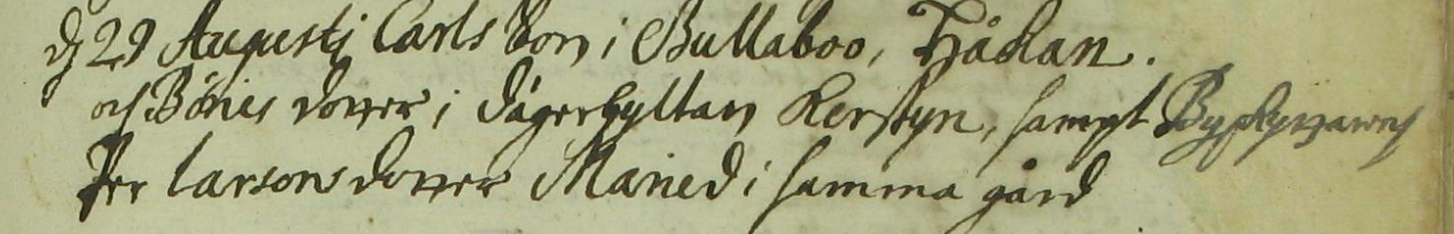 d 29 Augustj Carls Son i Bullaboo, Håkan.
och Bönes dotter i Sägerhyttan Kerstyn, sampt
Per Larsons dotter Maried i samma gård